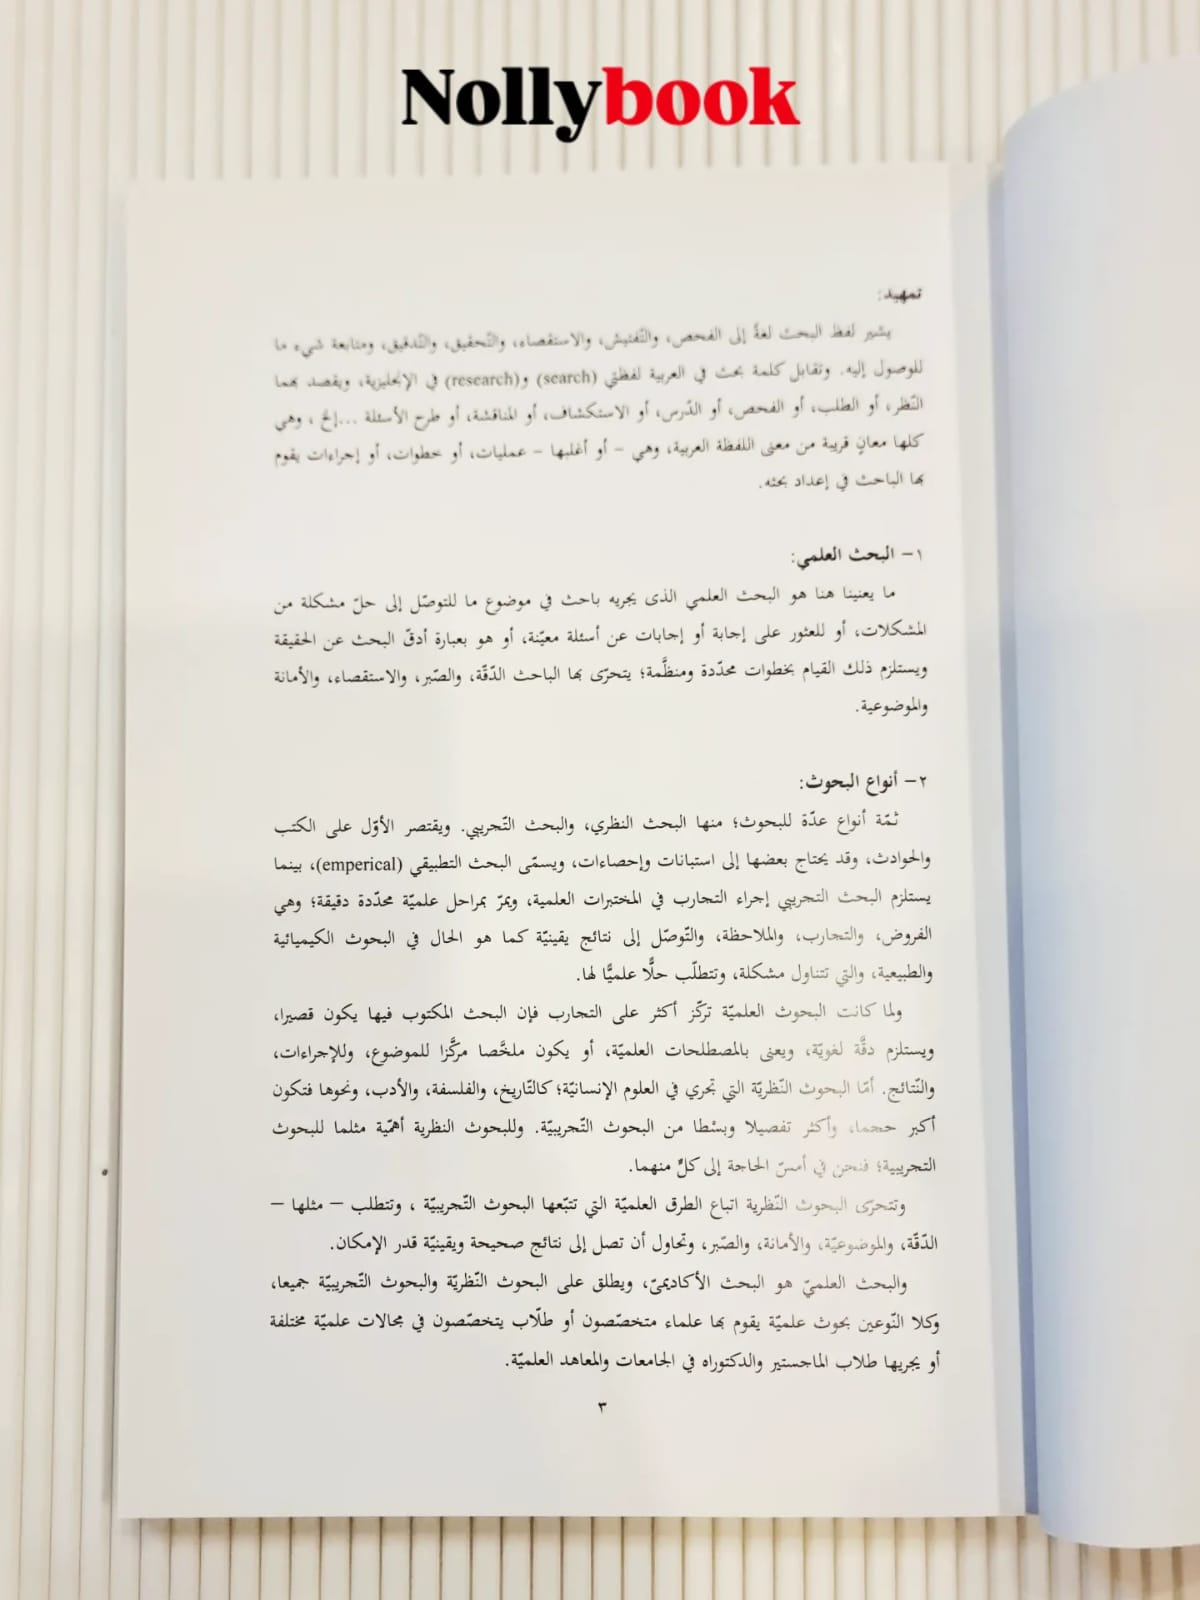 Nollybook
تمهيد:
يشير لفظ البحث لغةً إلى الفحص، والتّفتيش، والاستقصاء، والتّحقيق، والتّدقيق، ومتابعة شيء ما
للوصول إليه. وتقابل كلمة بحث في العربية لفظتي (search) و(research) في الإنجليزية، ويقصد بهما
النّظر، أو الطلب، أو الفحص، أو الدّرس، أو الاستكشاف، أو المناقشة، أو طرح الأسئلة ...إلخ ، وهي
كلها معانٍ قريبة من معنى اللفظة العربية، وهي – أو أغلبها – عمليات، أو خطوات، أو إجراءات يقوم
بها الباحث في إعداد بحثه.
١– البحث العلمي:
ما يعنينا هنا هو البحث العلمي الذى يجريه باحث في موضوع ما للتوصّل إلى حلّ مشكلة من
المشكلات، أو للعثور على إجابة أو إجابات عن أسئلة معيّنة، أو هو بعبارة أدقّ البحث عن الحقيقة
ويستلزم ذلك القيام بخطوات محدّدة ومنظَّمة؛ يتحرّى بها الباحث الدّقّة، والصّبر، والاستقصاء، والأمانة
والموضوعية.
٢– أنواع البحوث:
ثمّة أنواع عدّة للبحوث؛ منها البحث النظري، والبحث التّجريبي. ويقتصر الأوّل على الكتب
والحوادث، وقد يحتاج بعضها إلى استبانات وإحصاءات، ويسمّى البحث التطبيقي (emperical)، بينما
يستلزم البحث التجريبي إجراء التجارب في المختبرات العلمية، ويمرّ بمراحل علميّة محدّدة دقيقة؛ وهي
الفروض، والتجارب، والملاحظة، والتّوصّل إلى نتائج يقينيّة كما هو الحال في البحوث الكيميائية
والطبيعية، والتي تتناول مشكلة، وتتطلّب حلًّا علميًّا لها.
ولما كانت البحوث العلميّة تركّز أكثر على التجارب فإن البحث المكتوب فيها يكون قصيرا،
ويستلزم دقَّة لغويّة، ويعنى بالمصطلحات العلميّة، أو يكون ملخَّصا مركَّزا للموضوع، وللإجراءات،
والنّتائج. أمّا البحوث النّظريّة التي تجري في العلوم الإنسانيّة؛ كالتّاريخ، والفلسفة، والأدب، ونحوها فتكون
أكبر حجما، وأكثر تفصيلا وبسْطا من البحوث التّجريبيّة. وللبحوث النظرية أهمّية مثلما للبحوث
التجريبية؛ فنحن في أمسّ الحاجة إلى كلٍّ منهما.
وتتحرّى البحوث النّظرية اتباع الطرق العلميّة التي تتبّعها البحوث التّجريبيّة ، وتتطلب – مثلها –
الدّقّة، والموضوعيّة، والأمانة، والصّبر، وتحاول أن تصل إلى نتائج صحيحة ويقينيّة قدر الإمكان.
والبحث العلميّ هو البحث الأكاديمىّ، ويطلق على البحوث النّظريّة والبحوث التّجريبيّة جميعا،
وكلا النّوعين بحوث علميّة يقوم بها علماء متخصّصون أو طلّاب يتخصّصون في مجالات علميّة مختلفة
أو يجريها طلاب الماجستير والدكتوراه في الجامعات والمعاهد العلميّة.
٣